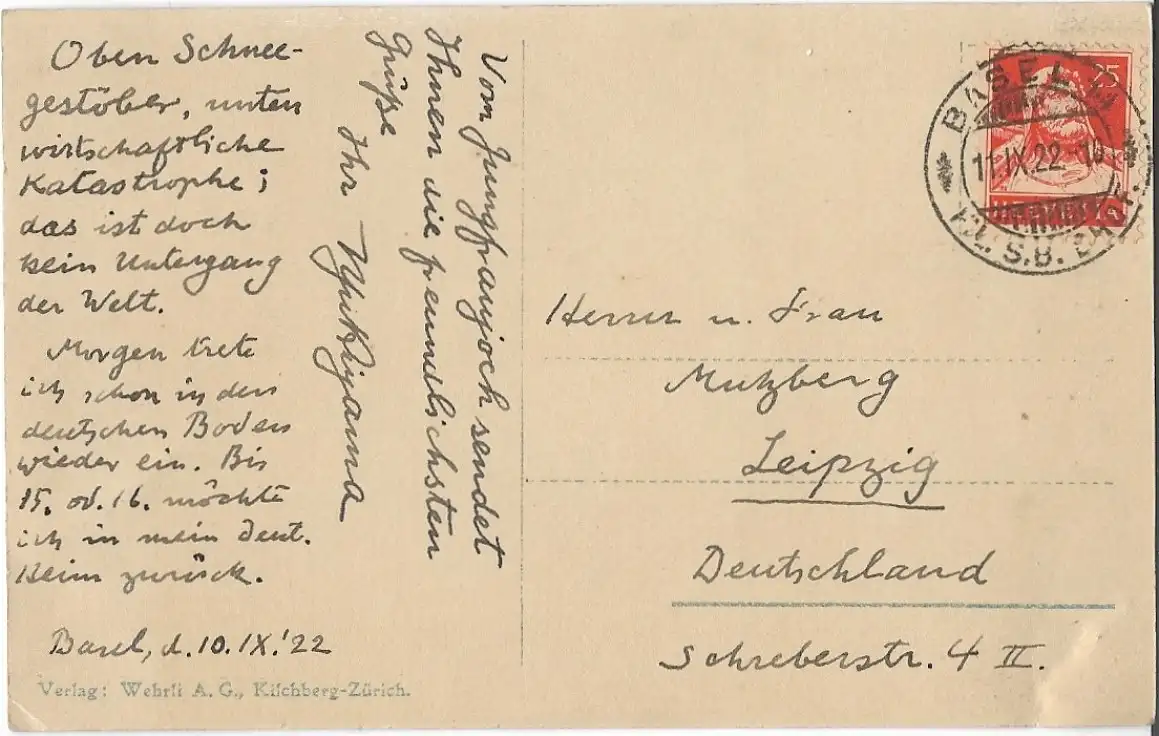 Oben Schnee-
gestöber, unten
wirtschaftliche
Katastrophe;
das ist doch
kein Untergang
der Welt.
Morgen trete
ich schon in den
deutschen Boden
wieder ein. Bis
15. od. 16. möchte
ich in mein deut.
Heim zurück.
Basel, d. 10. IX. '22
Verlag: Wehrli A. G., Kilchberg-Zürich.
Vom Jungfraujoch sendet
Ihnen die freundlichsten
Grüße
Ihr
25
BASEL
11.IX.22
S.B.
HELVETIA
Herrn u. Frau
Mutzberg
Leipzig
Deutschland
Schreberstr. 4 II.